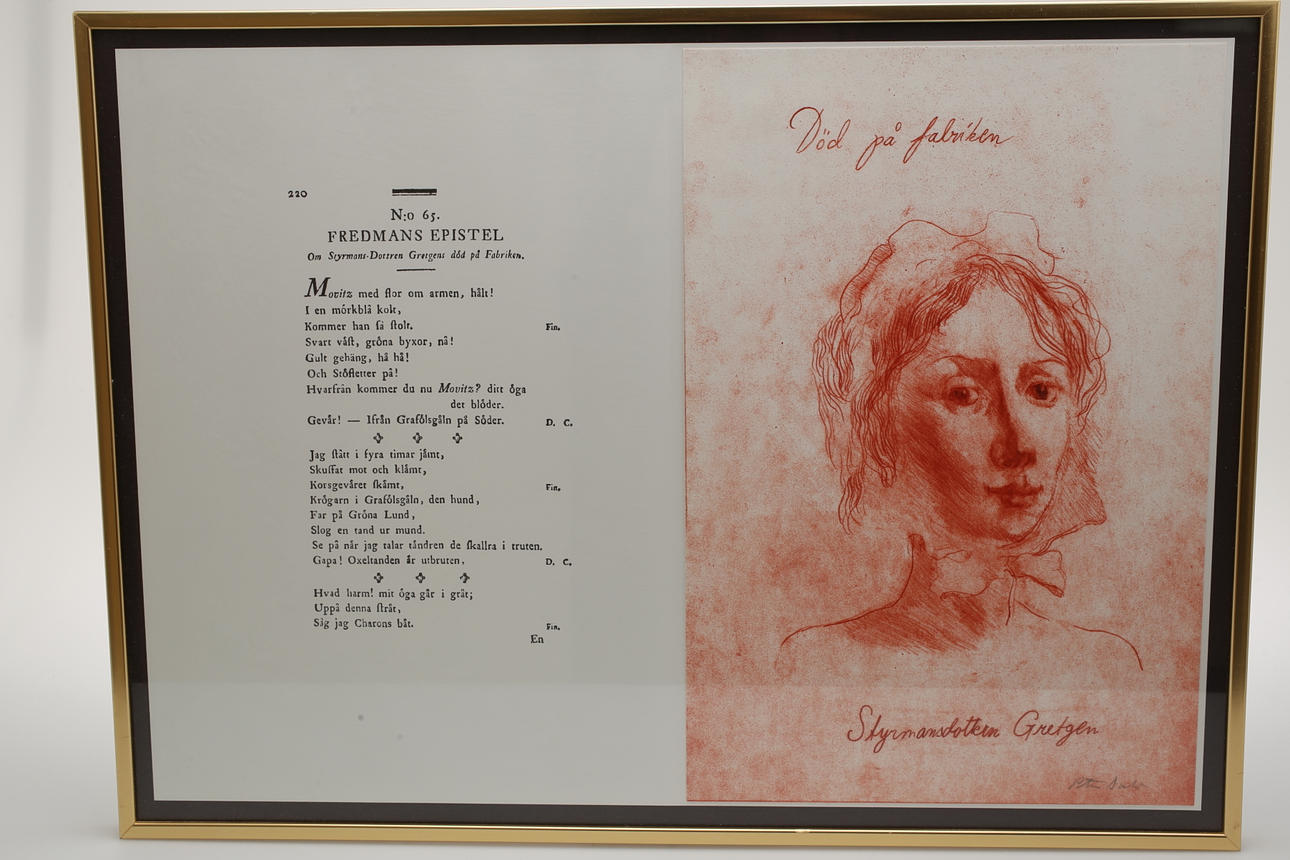 220
N:o 65.
FREDMANS EPISTEL
Om Styrmans-Dottren Gretgens död på Fabriken.
Movitz med flor om armen, hålt!
I en mörkblå kolt,
Kommer han ſå ſtolt.
Fin.
Svart väſt, gröna byxor, nå!
Gult gehäng, hå hå!
Och Stöfletter på!
Hvarfrån kommer du nu Movitz? ditt öga
det blöder.
Gevär! — Ifrån Grafölsgåln på Söder.
D. C.
Jag ſtått i fyra timar jämt,
Skuffat mot och klämt,
Korsgeväret ſkämt,
Fin.
Krögarn i Grafölsgåln, den hund,
Far på Gröna Lund,
Slog en tand ur mund.
Se på når jag talar tåndren de ſkallra i truten.
Gapa! Oxeltanden är utbruten,
D. C.
Hvad harm! mit öga går i gråt;
Uppå denna ſtråt,
Såg jag Charons båt.
Fin.
En
Död på fabriken
Styrmansdottren Gretgen
Peter Dahl